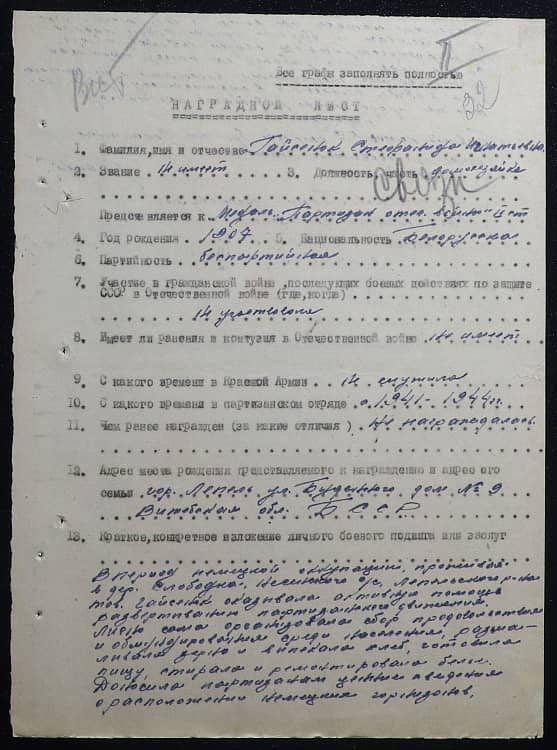 II
Все графы заполнять полностью
32
НАГРАДНОЙ ЛИСТ
1. Фамилия,имя и отчество Гайсенок Стефанида Игнатьевна
2. Звание . не имеет . 3. Должность,часть домохозяйка
связн
Представляется к медали "Партизан отеч. войны" II ст
4. Год рождения . 1907 . 5. Национальность Белоруска
6. Партийность . беспартийная
7. Участие в гражданской войне ,последующих боевых действиях по защите
СССР в Отечественной войне (где,когда)
не участвовала
8. Имеет ли ранения и контузия в Отечественной войне не имеет
9. С какого времени в Красной Армии . . не служила
10. С какого времени в партизанском отряде . с 1941-1944 г.
11. Чем ранее награжден (за какие отличия ) не награждалась
12. Адрес места рождения представляемого к награждению и адрес его
семьи гор. Лепель ул. Буденного дом № 9
Витебской обл. БССР
13. Краткое,конкретное изложение личного боевого подвига или заслуг
В период немецкой оккупации, проживая
в дер. Слободка, с/с, Лепельского р-на
тов. Гайсенок оказывала активную помощь
развертыванию партизанского движения.
Лично сама организовала сбор продовольствия
и обмундирования среди населения, разма-
лывала зерно и выпекала хлеб, готовила
пищу, стирала и ремонтировала белье.
Доносила партизанам ценные сведения
о расположении немецких гарнизонов,